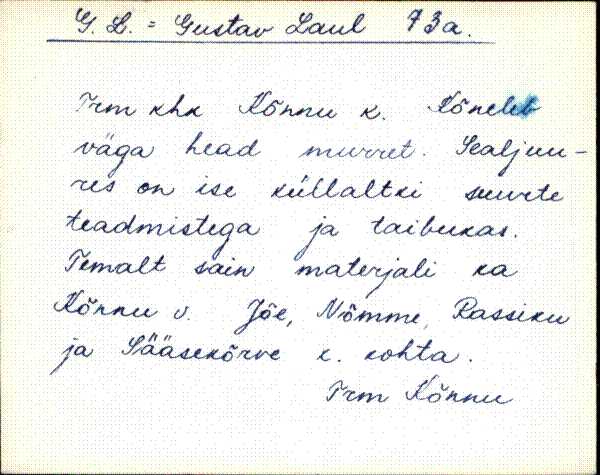 G. L. = Gustav Laul 73a.
Trm khk Kõnnu k. Kõneleb
väga head murret. Sealjuu-
res on ise küllaltki suurte
teadmistega ja taibukas.
Temalt sain materjali ka
Kõnnu v. Jõe, Nõmme, Rassiku
ja Sääsekõrve k. kohta.
Trm Kõnnu